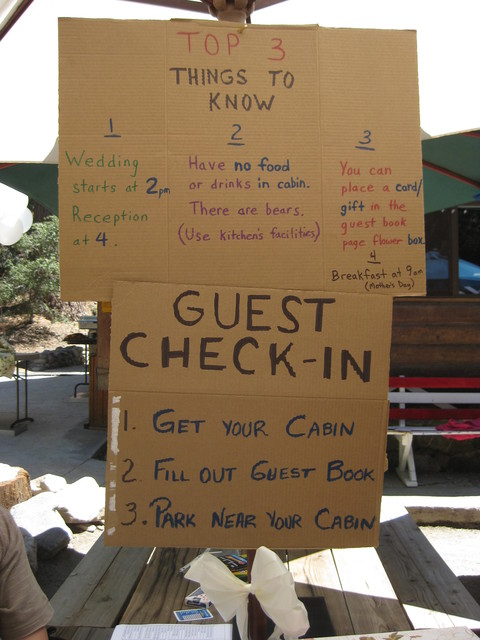 TOP 3
THINGS TO
KNOW
1
Wedding
starts at 2pm
Reception
at 4.
2
Have no food
or drinks in cabin.
There are bears.
(Use kitchen's facilities)
3
You can
place a card/
gift in the
guest book
page flower box
4
Breakfast at 9am
(Mother's Day)
GUEST
CHECK-IN
1. GET YOUR CABIN
2. FILL OUT GUEST BOOK
3. PARK NEAR YOUR CABIN